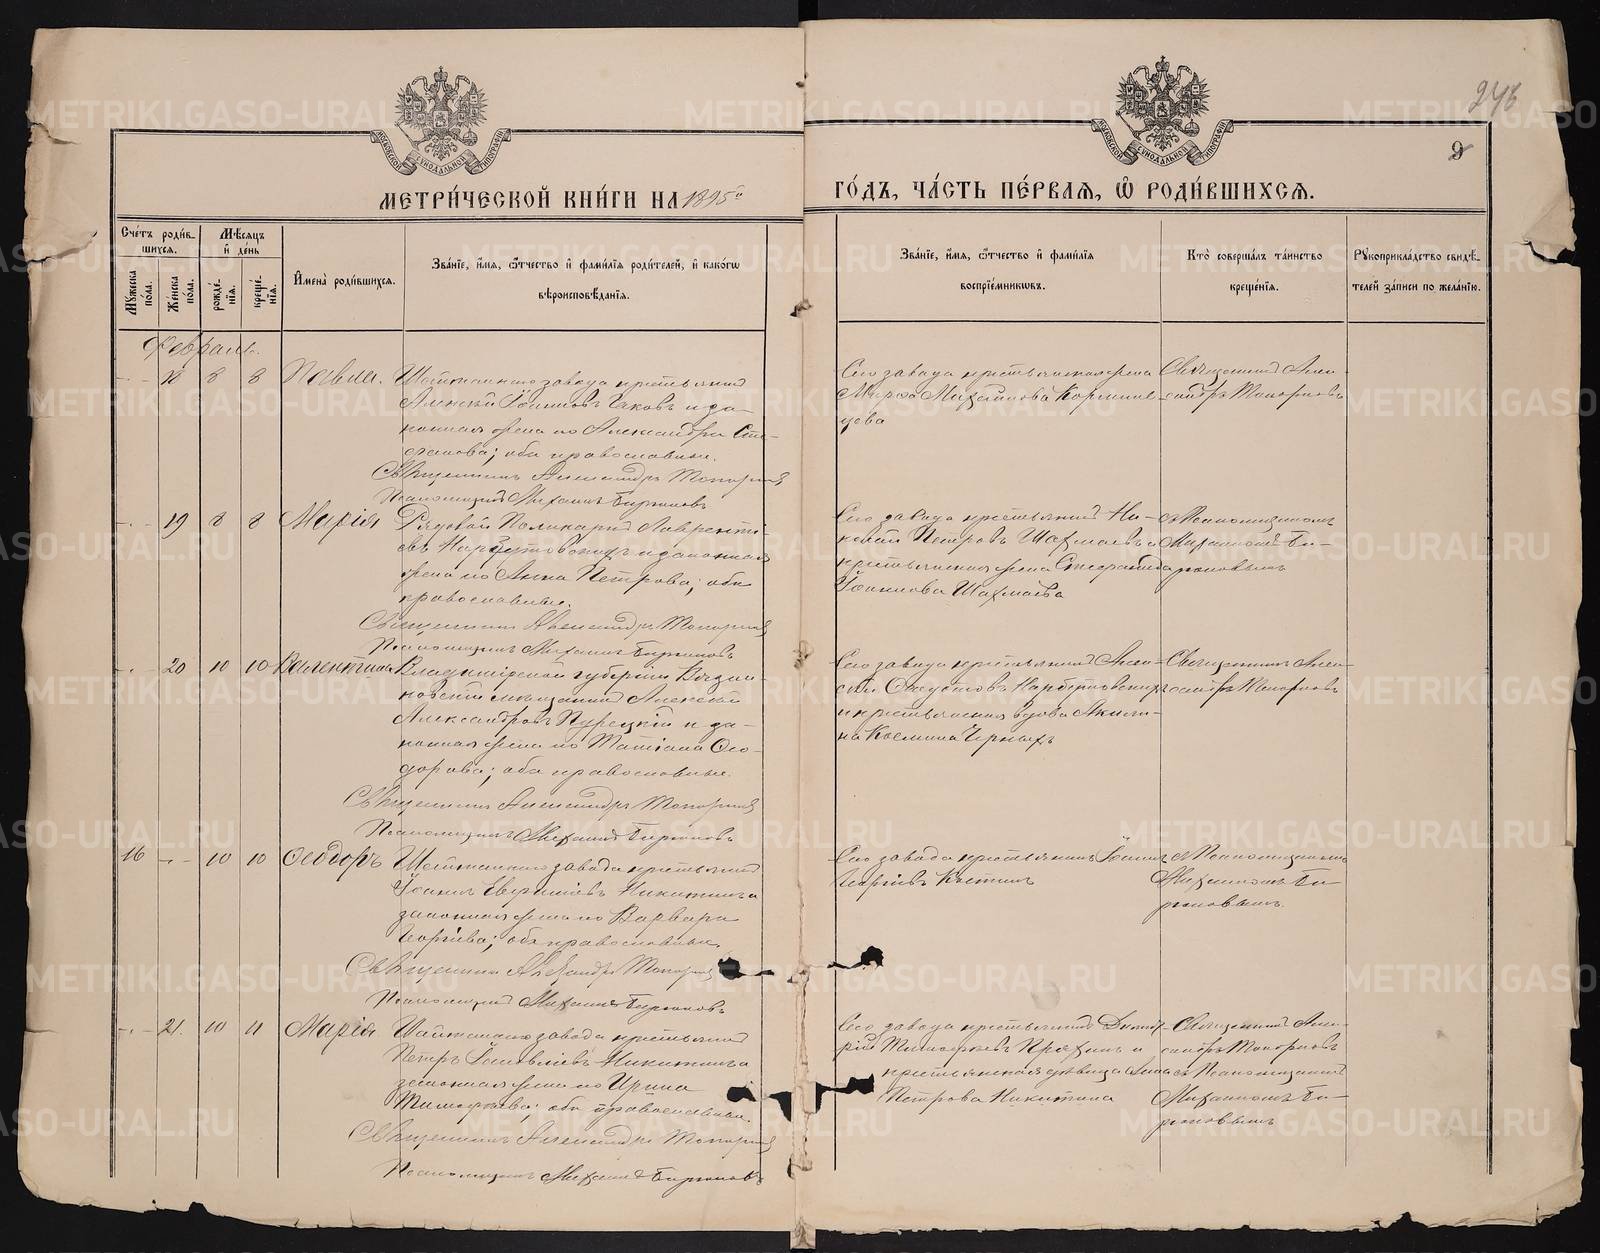 246
9
МЕТРИЧЕСКОЙ КНИГИ НА 1895й
ГОДЪ, ЧАСТЬ ПЕРВАЯ, Ѿ РОДИВШИХСЯ.
МОСКОВСКОЙ СѴНОДАЛЬНОЙ ТИПОГРАФІИ
МОСКОВСКОЙ СѴНОДАЛЬНОЙ ТИПОГРАФІИ
Счетъ родившихся.
Мужеска пола.
Женска пола.
Мѣсяцъ и день
рожденія.
крещенія.
Имена родившихся.
Званіе, имя, ѿчество и фамилія родителей, и какогѡ
вѣроисповѣданія.
Званіе, имя, ѿчество и фамилія
воспріемниковъ.
Кто совершалъ таинство
крещенія.
Рукоприкладство свидѣтелей записи по желанію.
Февраль.
8 8 Павла.
Шайтанскаго завода крестьянинъ
законная жена его Александра Сте-
фанова; оба православные.
Священникъ Александръ Топорковъ
Псаломщикъ Михаилъ Бирюковъ
Сего завода крестьянская жена
Михайлова
Священникъ Алек-
сандръ Топорковъ
19 8 8 Марія
Рядовой Поликарпъ Лаврентi-
евъ и законная
жена его Анна Петрова; оба
православные.
Священникъ Александръ Топорковъ
Псаломщикъ Михаилъ Бирюковъ
Сего завода крестьянинъ Ни-
колай Петровъ Шахмаевъ и
крестьянская жена Серафима
Іоаннова Шахмаева
съ Псаломщикомъ
Михаиломъ Би-
рюковымъ
20 10 10 Валентина
Владимірской губерніи Вязни-
ковскій мѣщанинъ Алексѣй
Александровъ Пурецкій и за-
конная жена его Татіана Ѳео-
дорова; оба православные.
Священникъ Александръ Топорковъ
Псаломщикъ Михаилъ Бирюковъ
Сего завода крестьянинъ Алек-
и крестьянская вдова Акили-
на Космина Черныхъ
Священникъ Алек-
сандръ Топорковъ
16 10 10 Ѳеодоръ
Шайтанскаго завода крестьянинъ
Іоаннъ Никитинъ и
законная жена его Варвара
Георгіева; оба православные
Священникъ Александръ Топорковъ
Псаломщикъ Михаилъ Бирюковъ
Сего завода крестьянинъ Іоаннъ
Георгіевъ Костинъ
съ Псаломщикомъ
Михаиломъ Би-
рюковымъ.
21. 10 11 Марія
Шайтанскаго завода крестьянинъ
Петръ Іаковлевъ Никитинъ и
законная жена его Ирина
Тимофеева; оба православные.
Священникъ Александръ Топорковъ
Псаломщикъ Михаилъ Бирюковъ
Сего завода крестьянинъ Димит-
рій Тимофеевъ и
крестьянская дѣвица Анна
Петрова Никитина
Священникъ Алек-
сандръ Топорковъ
съ Псаломщикомъ
Михаиломъ Би-
рюковымъ
METRIKI.GASO-URAL.RU